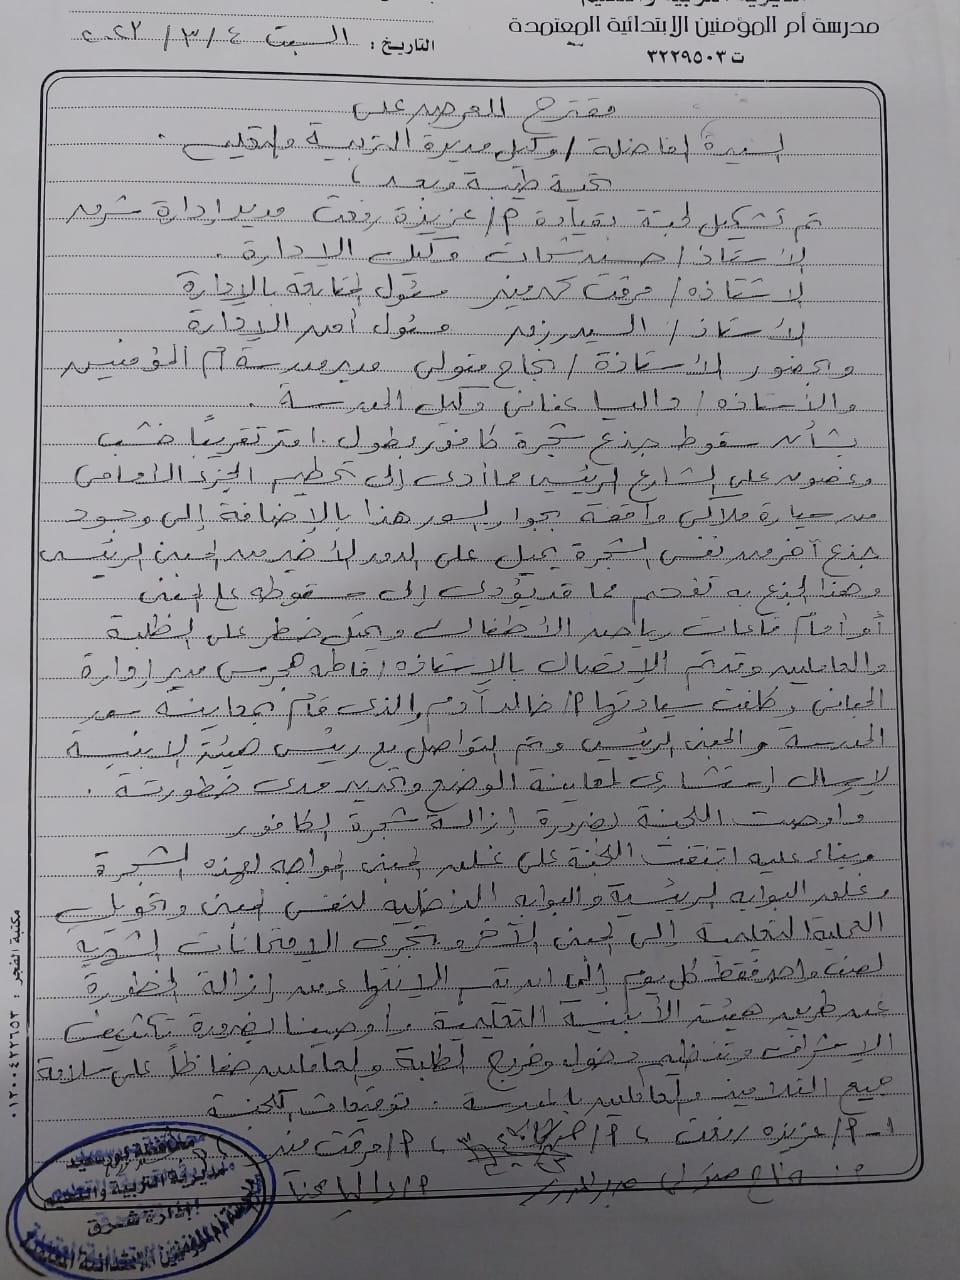 مدرسة أم المؤمنين الابتدائية المعتمدة
ت ٣٢٢٩٥٠٣
التاريخ : السبت ٤ / ٣ / ٢٠٢٣
مقترح للعرض على
السيدة الفاضلة / وكيل مديرية التربية والتعليم .
تحية طيبة وبعد ،
تم تشكيل لجنة بقيادة م / عزيزة رفعت مدير إدارة شرق
الأستاذ / شحات وكيل الإدارة .
الأستاذه / مرفت مسئول المتابعة بالإدارة
الأستاذ / السيد مسئول أمن الإدارة
وبحضور الأستاذة / نجاح متولى مدير مدرسة أم المؤمنين
والأستاذه / داليا عنانى وكيل المدرسة .
بشأن سقوط جذع شجرة كافور بطول ١٠ متر تقريباً خشب
وغصون على الشارع الرئيسى مما أدى إلى تحطيم الجزء الأمامى
من سيارة ملاكى واقفة بجوار السور هذا بالإضافة إلى وجود
جذع آخر من نفس الشجرة يميل على الدور الأخير من المبنى الرئيسى
وهذا الجزع به تفحم مما قد يؤدى إلى سقوطه على المبنى
أو أمام قاعات رياض الأطفال ويمثل خطر على الطلبة
والعاملين وقد تم الاتصال بالاستاذه / فاطمه مدير إدارة
المبانى وكلفت سيادتها م / خالد آدم والذى قام بمعاينة سور
المدرسة والمبنى الرئيسى وتم التواصل مع رئيس هيئة الابنية
لإرسال إستشارى لمعاينة الوضع وتحديد مدى خطورته .
وأوصت اللجنة لضرورة إزالة شجرة الكافور
وبناء عليه اتفقت اللجنة على غلق المبنى المواجه لهذه الشجرة
وغلق البوابه الرئيسية والبوابه الداخليه لنفس المبنى وتحويل
العملية التعليمية إلى المبنى الآخر وتجرى الامتحانات الشهرية
لصف واحد فقط كل يوم إلى أن يتم الانتهاء من إزالة الخطورة
عن طريق هيئة الأبنية التعليمية وأوصينا لضرورة تكثيف
الإشراف وتنظيم دخول وخروج الطلبة والعاملين حفاظاً على سلامة
جميع القادمين والعاملين بالمدرسة . توقيعات اللجنة
١- م / عزيزه رفعت ، م / ، م / مرفت
نجاح متولى م / داليا
محافظة بورسعيد
مديرية التربية والتعليم
إدارة شرق
مدرسة أم المؤمنين الابتدائية المعتمدة
مكتبة الفجر : ٠١٢٠٠٤٢٢٦٥٣